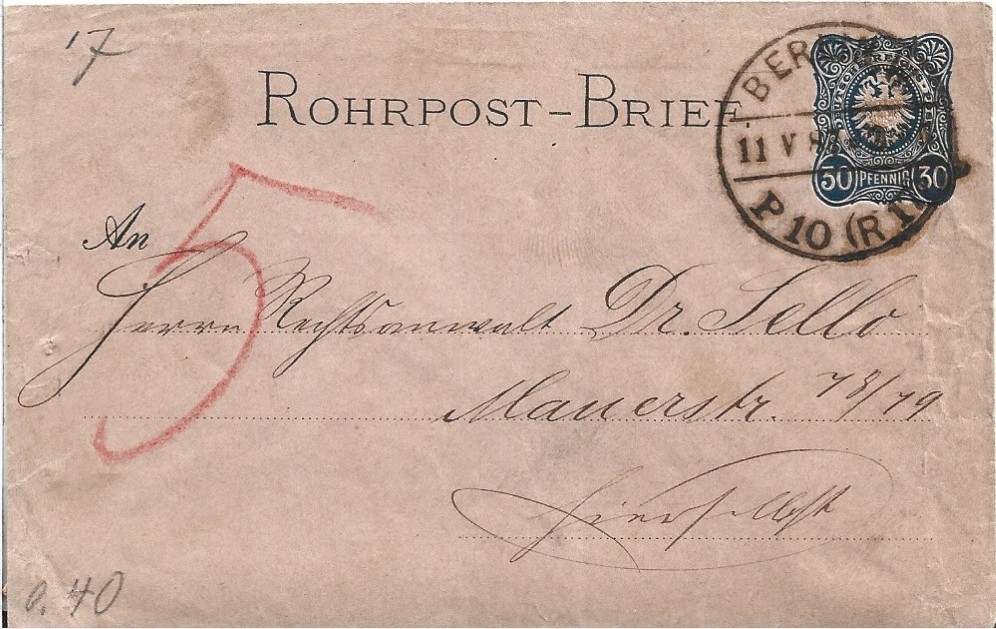 17
ROHRPOST-BRIEF.
BER
11 V 8
P. 10 (R 1
PFENNIG 30
5
An
Herrn Rechtsanwalt Dr. Sello
Mauerstr. 78/79
hierselbst
0.40